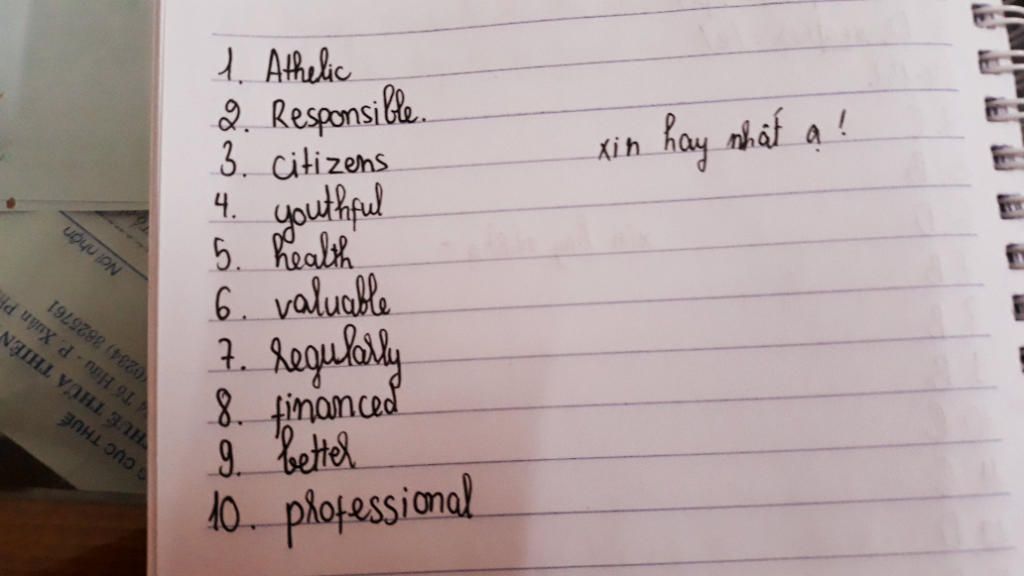 1. Athelic
2. Responsible.
3. citizens
xin hay nhất ạ!
4. youthful
5. health
6. valuable
7. Regularly
8. financed
9. better
10. professional
Nơi nhận
CỤC THUẾ
THUẾ THỪA THIÊN
Tố Hữu - P. Xuân Ph
(0234) 3825761